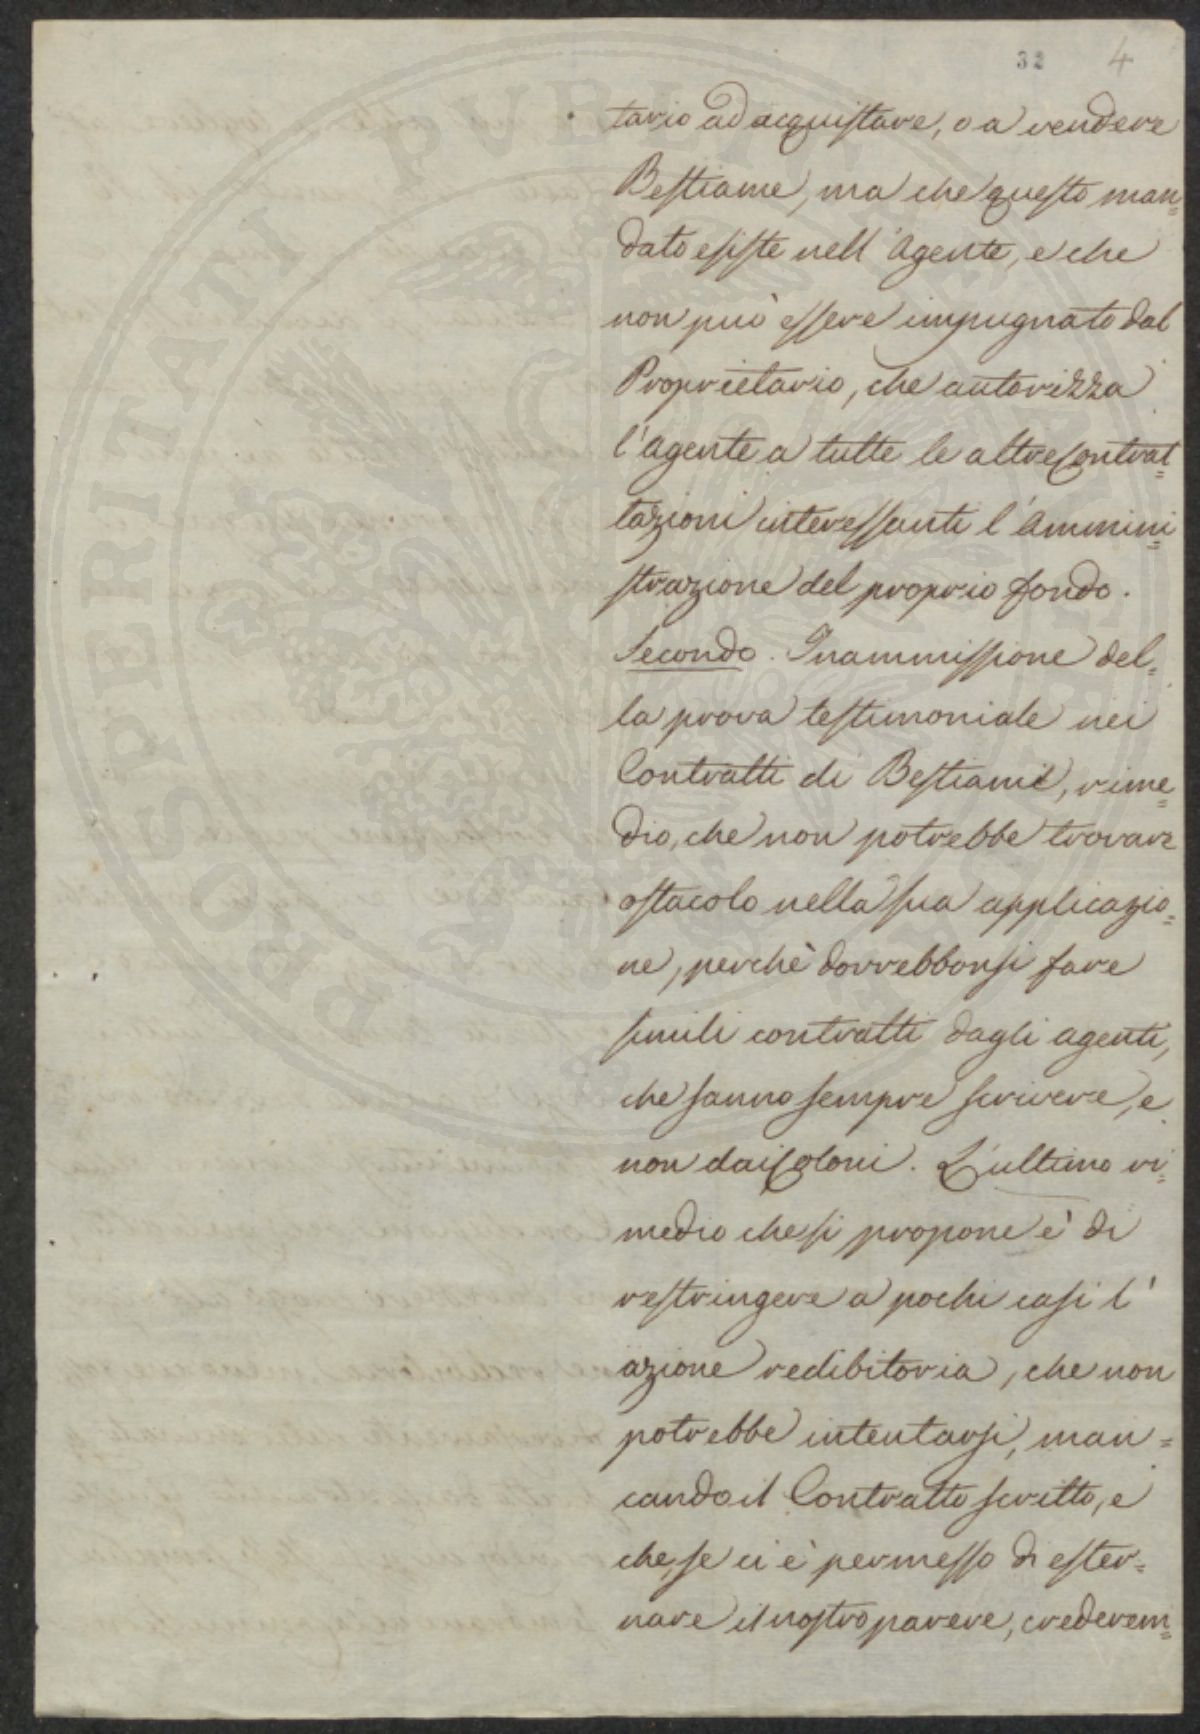 32 4
tario ad acquistare, o a vendere
Bestiame, ma che questo man=
dato esiste nell'Agente, e che
non può essere impugnato dal
Proprietario, che autorizza
l'Agente a tutte le altre Contrat=
tazioni interessanti l'Ammini=
strazione del proprio fondo.
Secondo. Inammissione del=
la prova testimoniale nei
Contratti di Bestiami, rime=
dio, che non potrebbe trovare
ostacolo nella sua applicazio=
ne, perchè dovrebbonsi fare
simili contratti dagli agenti,
che sanno sempre scrivere, e
non dai Coloni. L'ultimo ri=
medio che si propone è di
restringere a pochi casi l'
azione redibitoria, che non
potrebbe intentarsi, man=
cando il Contratto scritto, e
che, se ci è permesso di ester=
nare il nostro parere, crederem=
PROSPERITATI PUBLICAE